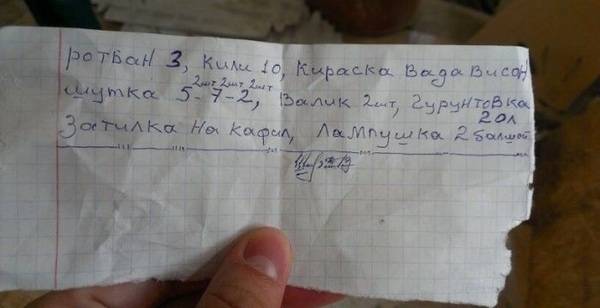 ротбан 3, Кили 10, Кираска Вада Висон
2шт 2шт 2шт
шутка 5-7-2, Валик 2шт, Гурунтовка
20л
Затилка на кафил, Лампушка 2 балшой